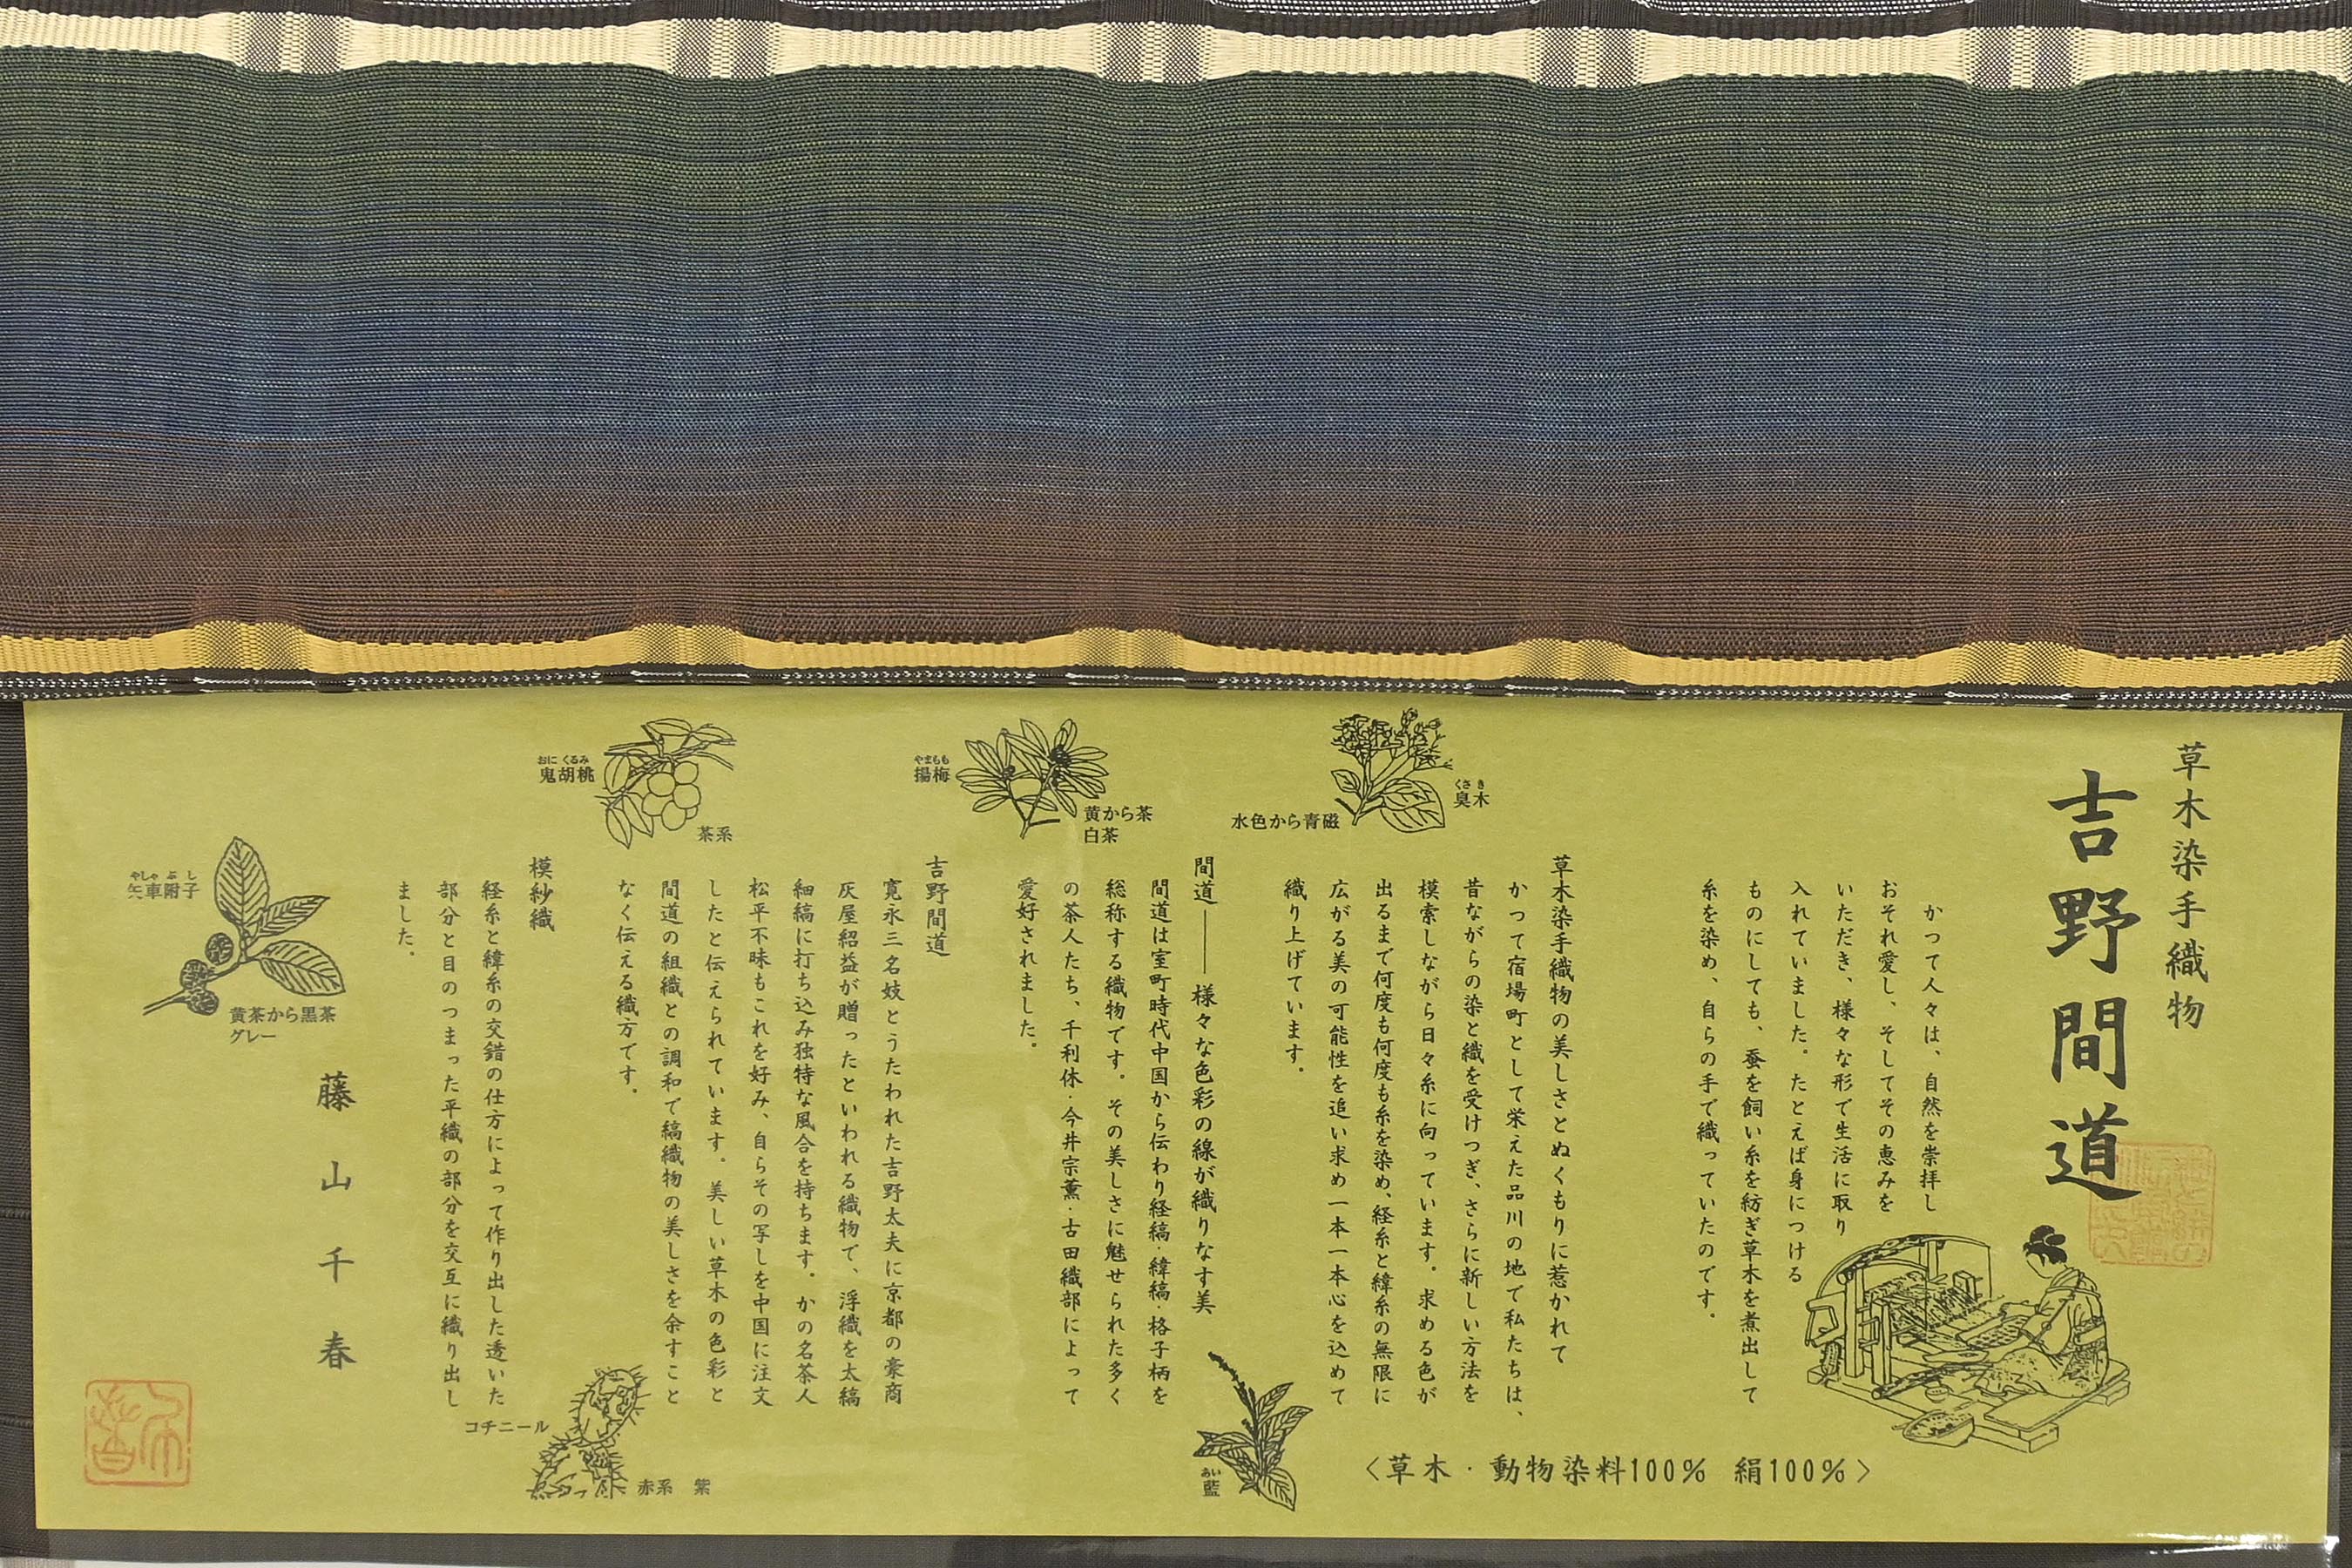 草木染手織物
吉野間道
かつて人々は、自然を崇拝し
おそれ愛し、そしてその恵みを
いただき、様々な形で生活に取り
入れていました。たとえば身につける
ものにしても、蚕を飼い糸を紡ぎ草木を煮出して
糸を染め、自らの手で織っていたのです。
草木染手織物の美しさとぬくもりに惹かれて
かつて宿場町として栄えた品川の地で私たちは、
昔ながらの染と織を受けつぎ、さらに新しい方法を
模索しながら日々糸に向っています。求める色が
出るまで何度も何度も糸を染め、経糸と緯糸の無限に
広がる美の可能性を追い求め一本一本心を込めて
織り上げています。
間道――様々な色彩の線が織りなす美
間道は室町時代中国から伝わり経縞・緯縞・格子柄を
総称する織物です。その美しさに魅せられた多く
の茶人たち、千利休・今井宗薫・古田織部によって
愛好されました。
吉野間道
寛永三名妓とうたわれた吉野太夫に京都の豪商
灰屋紹益が贈ったといわれる織物で、浮織を太縞
細縞に打ち込み独特な風合を持ちます。かの名茶人
松平不昧もこれを好み、自らその写しを中国に注文
したと伝えられています。美しい草木の色彩と
間道の組織との調和で縞織物の美しさを余すこと
なく伝える織方です。
模紗織
経糸と緯糸の交錯の仕方によって作り出した透いた
部分と目のつまった平織の部分を交互に織り出し
ました。
藤山千春
くさき
臭木
水色から青磁
やまもも
揚梅
黄から茶
白茶
おにくるみ
鬼胡桃
茶系
やしゃぶし
矢車附子
黄茶から黒茶
グレー
コチニール
赤系 紫
あい
藍
〈草木・動物染料100% 絹100%〉